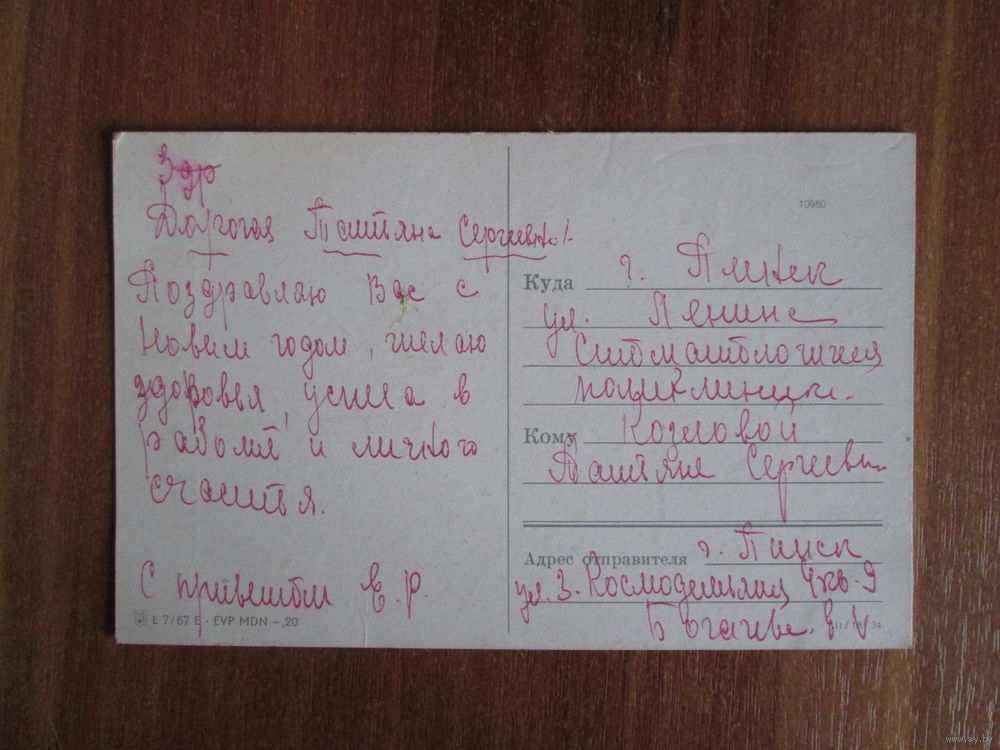 Здр
Дорогая Татьяна Сергеевна!
Поздравляю Вас с
Новым годом, желаю
здоровья, успеха в
работе и личного
счастья.
С приветом Е. Р.
L 7/67 E - EVP MDN -,20
10980
Куда г. Пинск
ул. Ленина
Стоматологическая
поликлиника.
Кому Козловой
Татьяне Сергеевне
Адрес отправителя г. Пинск
ул. З. Космодемьянской 4 кв. 9
34
www.ay.by